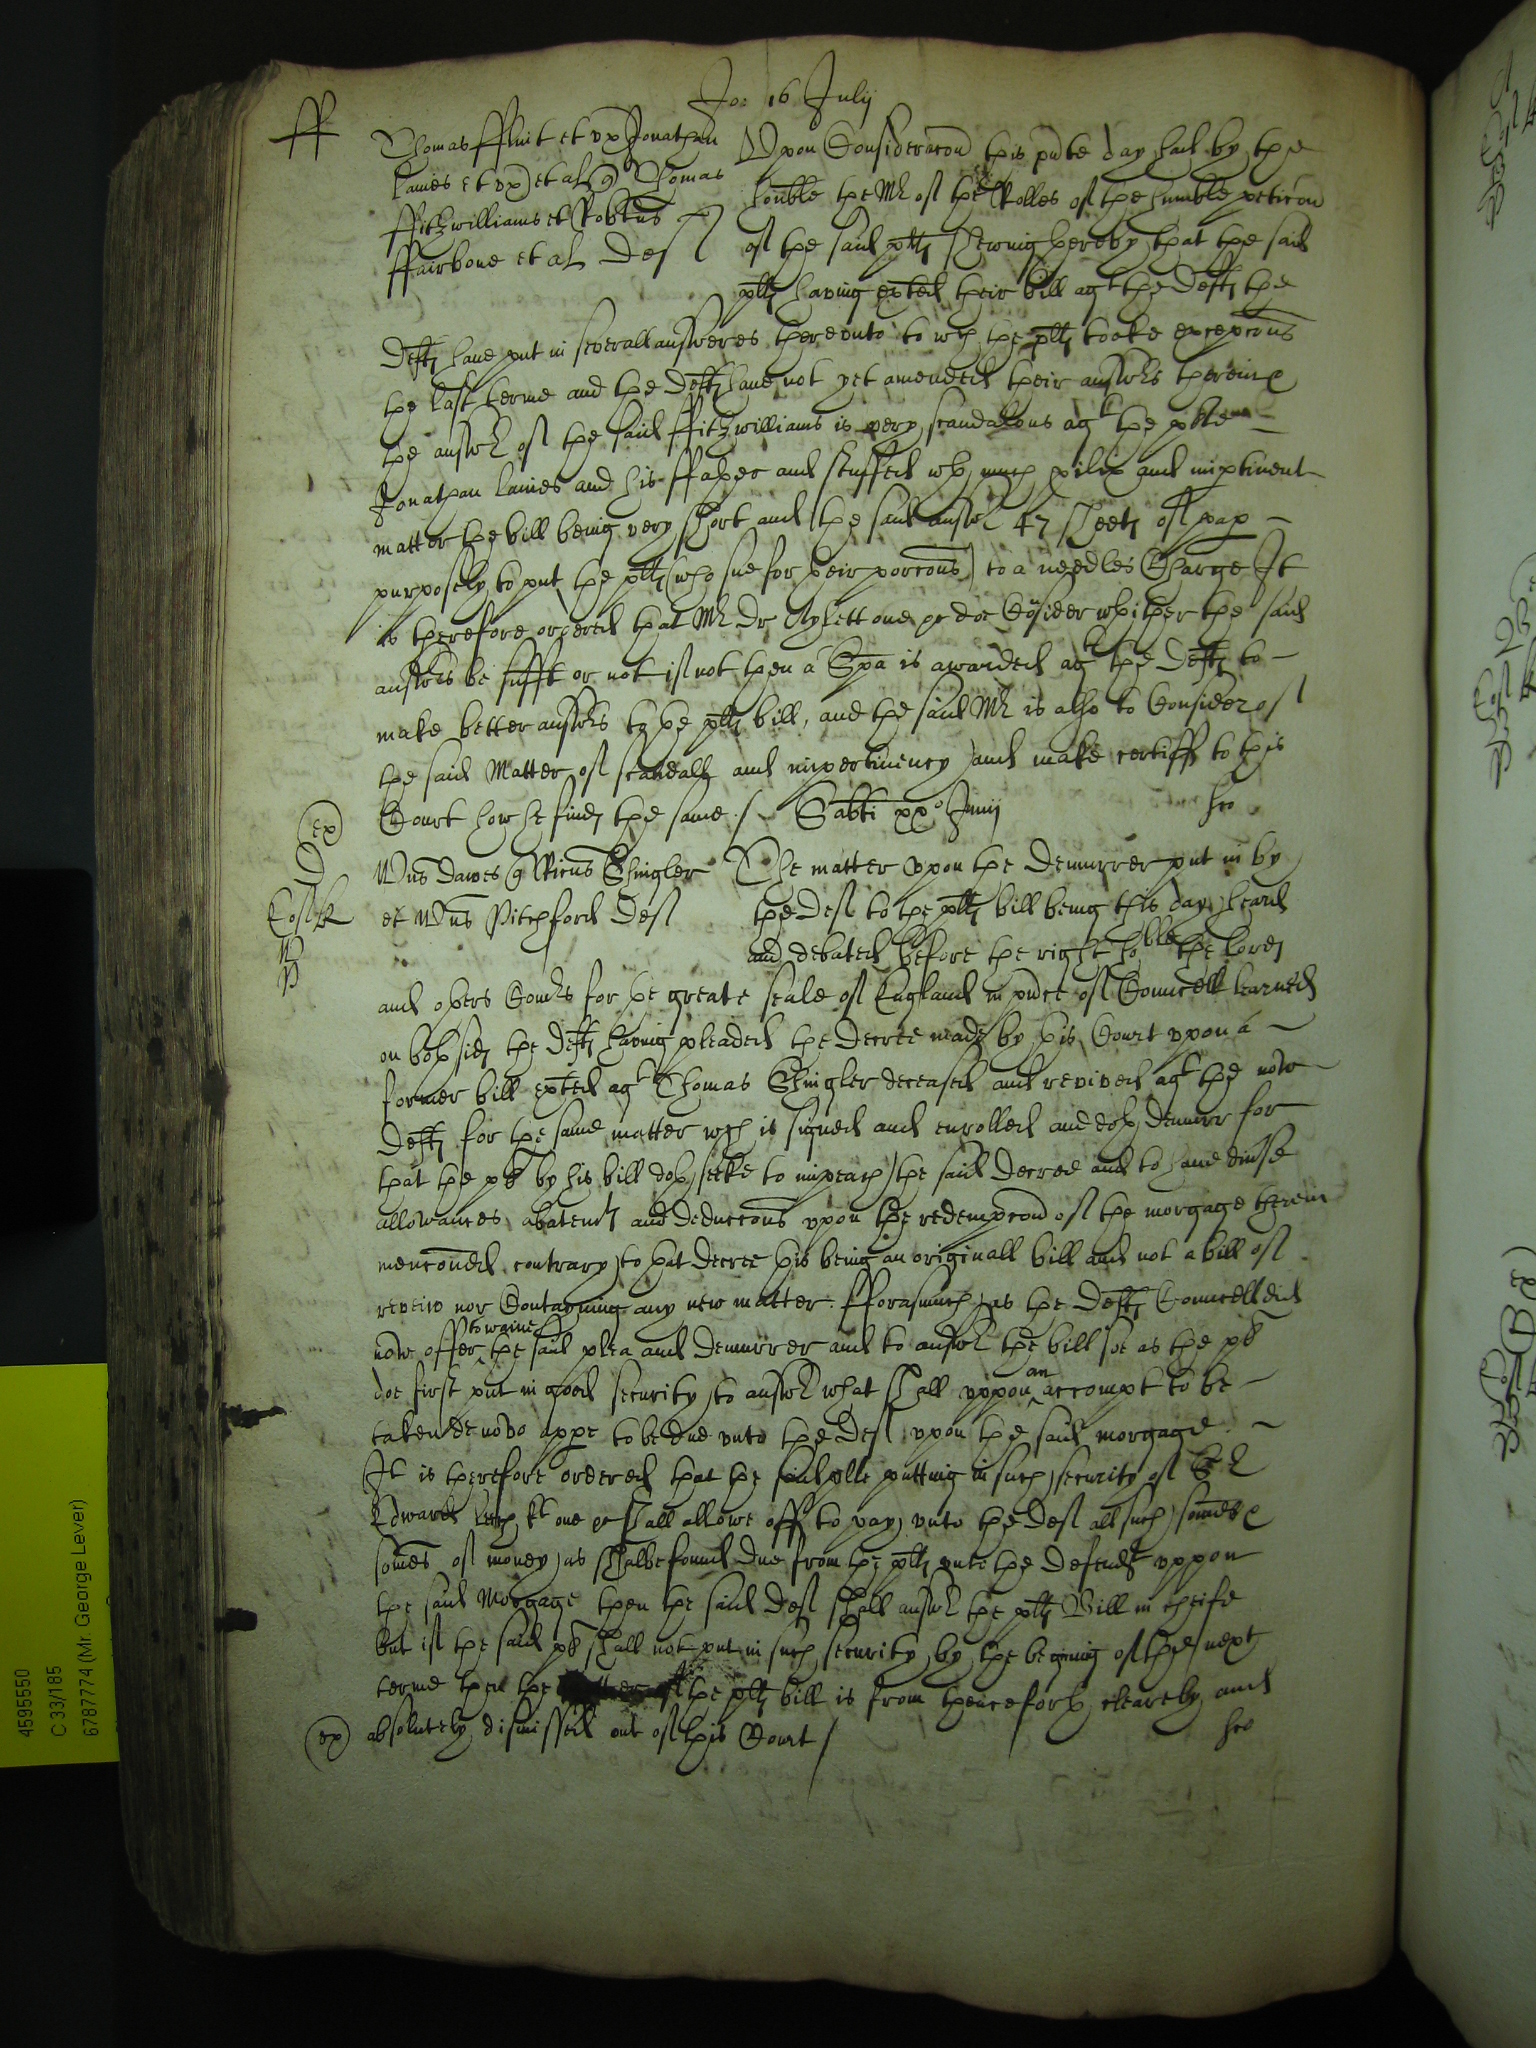 Jo: 16 Julij
ff
Thomas fflint et vx Jonathan
James et vx et al q Thomas
ffitzwilliams et Robtus
ffairbone et al Def
Vpon Consideracon this pnte day had by the
honble the Mr of the Rolles of the humble peticon
of the said plts shewing hereby that the said
plts having exted their bill agt the Defts the
Defts have put in severall answeres therevnto to wch the plts tooke excepcons
the last terme and the Defts have not yet amended their answrs therein
the answr of the said ffitzwilliams is very scandalous agt the plte
Jonathan James and his ffather and stuffed wth much prolix and impertinent
matter the bill being very short and the said answr 47 sheets of pap
purposely to put the plts (who sue for their porcons) to a needles Charge It
is therefore ordered that Mr Dr Aylett one &c doe Consider whither the said
answrs be sufft or not if not then a Spa is awarded agt the Defts to
make better answrs to the plts bill, and the said Mr is also to Consider of
the said Matter of scandall and impertinency and make certiff to this
Court how he finds the same / Sabti xxo Junij
hro
ex
D
Wms Dawes q Ricus Shingler
et Wms Pitchford Def
The matter vpon the Demurrer put in by
the Def to the plts bill being this day heard
and debated before the right hoble the lords
and others Comrs for the greate seale of England in pnce of Councell learned
on both sides the Defts having pleaded the Decree made by this Court vpon a
former bill exted agt Thomas Shingler deceased and revived agt the now
Defts for the same matter wch is signed and enrolled and doth Demurr for
that the plt by his bill doth seeke to impeach the said Decree and to have divse
allowances abatemts and deduccons vpon the redempcon of the morgage therein
menconed contrary to that decree this being an originall bill and not a bill of
reveiw nor Contayning any new matter. fforasmuch as the Defts Councell did
to waive
now offer the said plea and Demurrer and to answr the bill soe as the plt
an
doe first put in good security to answr what shall vppon accompt to be
taken de novo appe to be due vnto the Def vpon the said morgage
It is therefore ordered that the said plte putting in such security as Sr
Edward Leech kt one &c shall allowe off to pay vnto the Def all such some &
somes of money as shalbe found due from the plts vnto the Defendt vppon
the said Morgage then the said Def shall answr the plts Bill in cheife
But if the said plt shall not put in such security by the begining of the next
terme then the the plts bill is from thenceforth clearely and
absolutely dismissed out of this Court /
hro
ex
4595550
C 33/185
67877774 (Mr. George Lever)